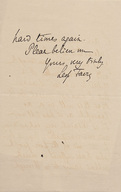 hard times again
Please believe me
Yours very truly